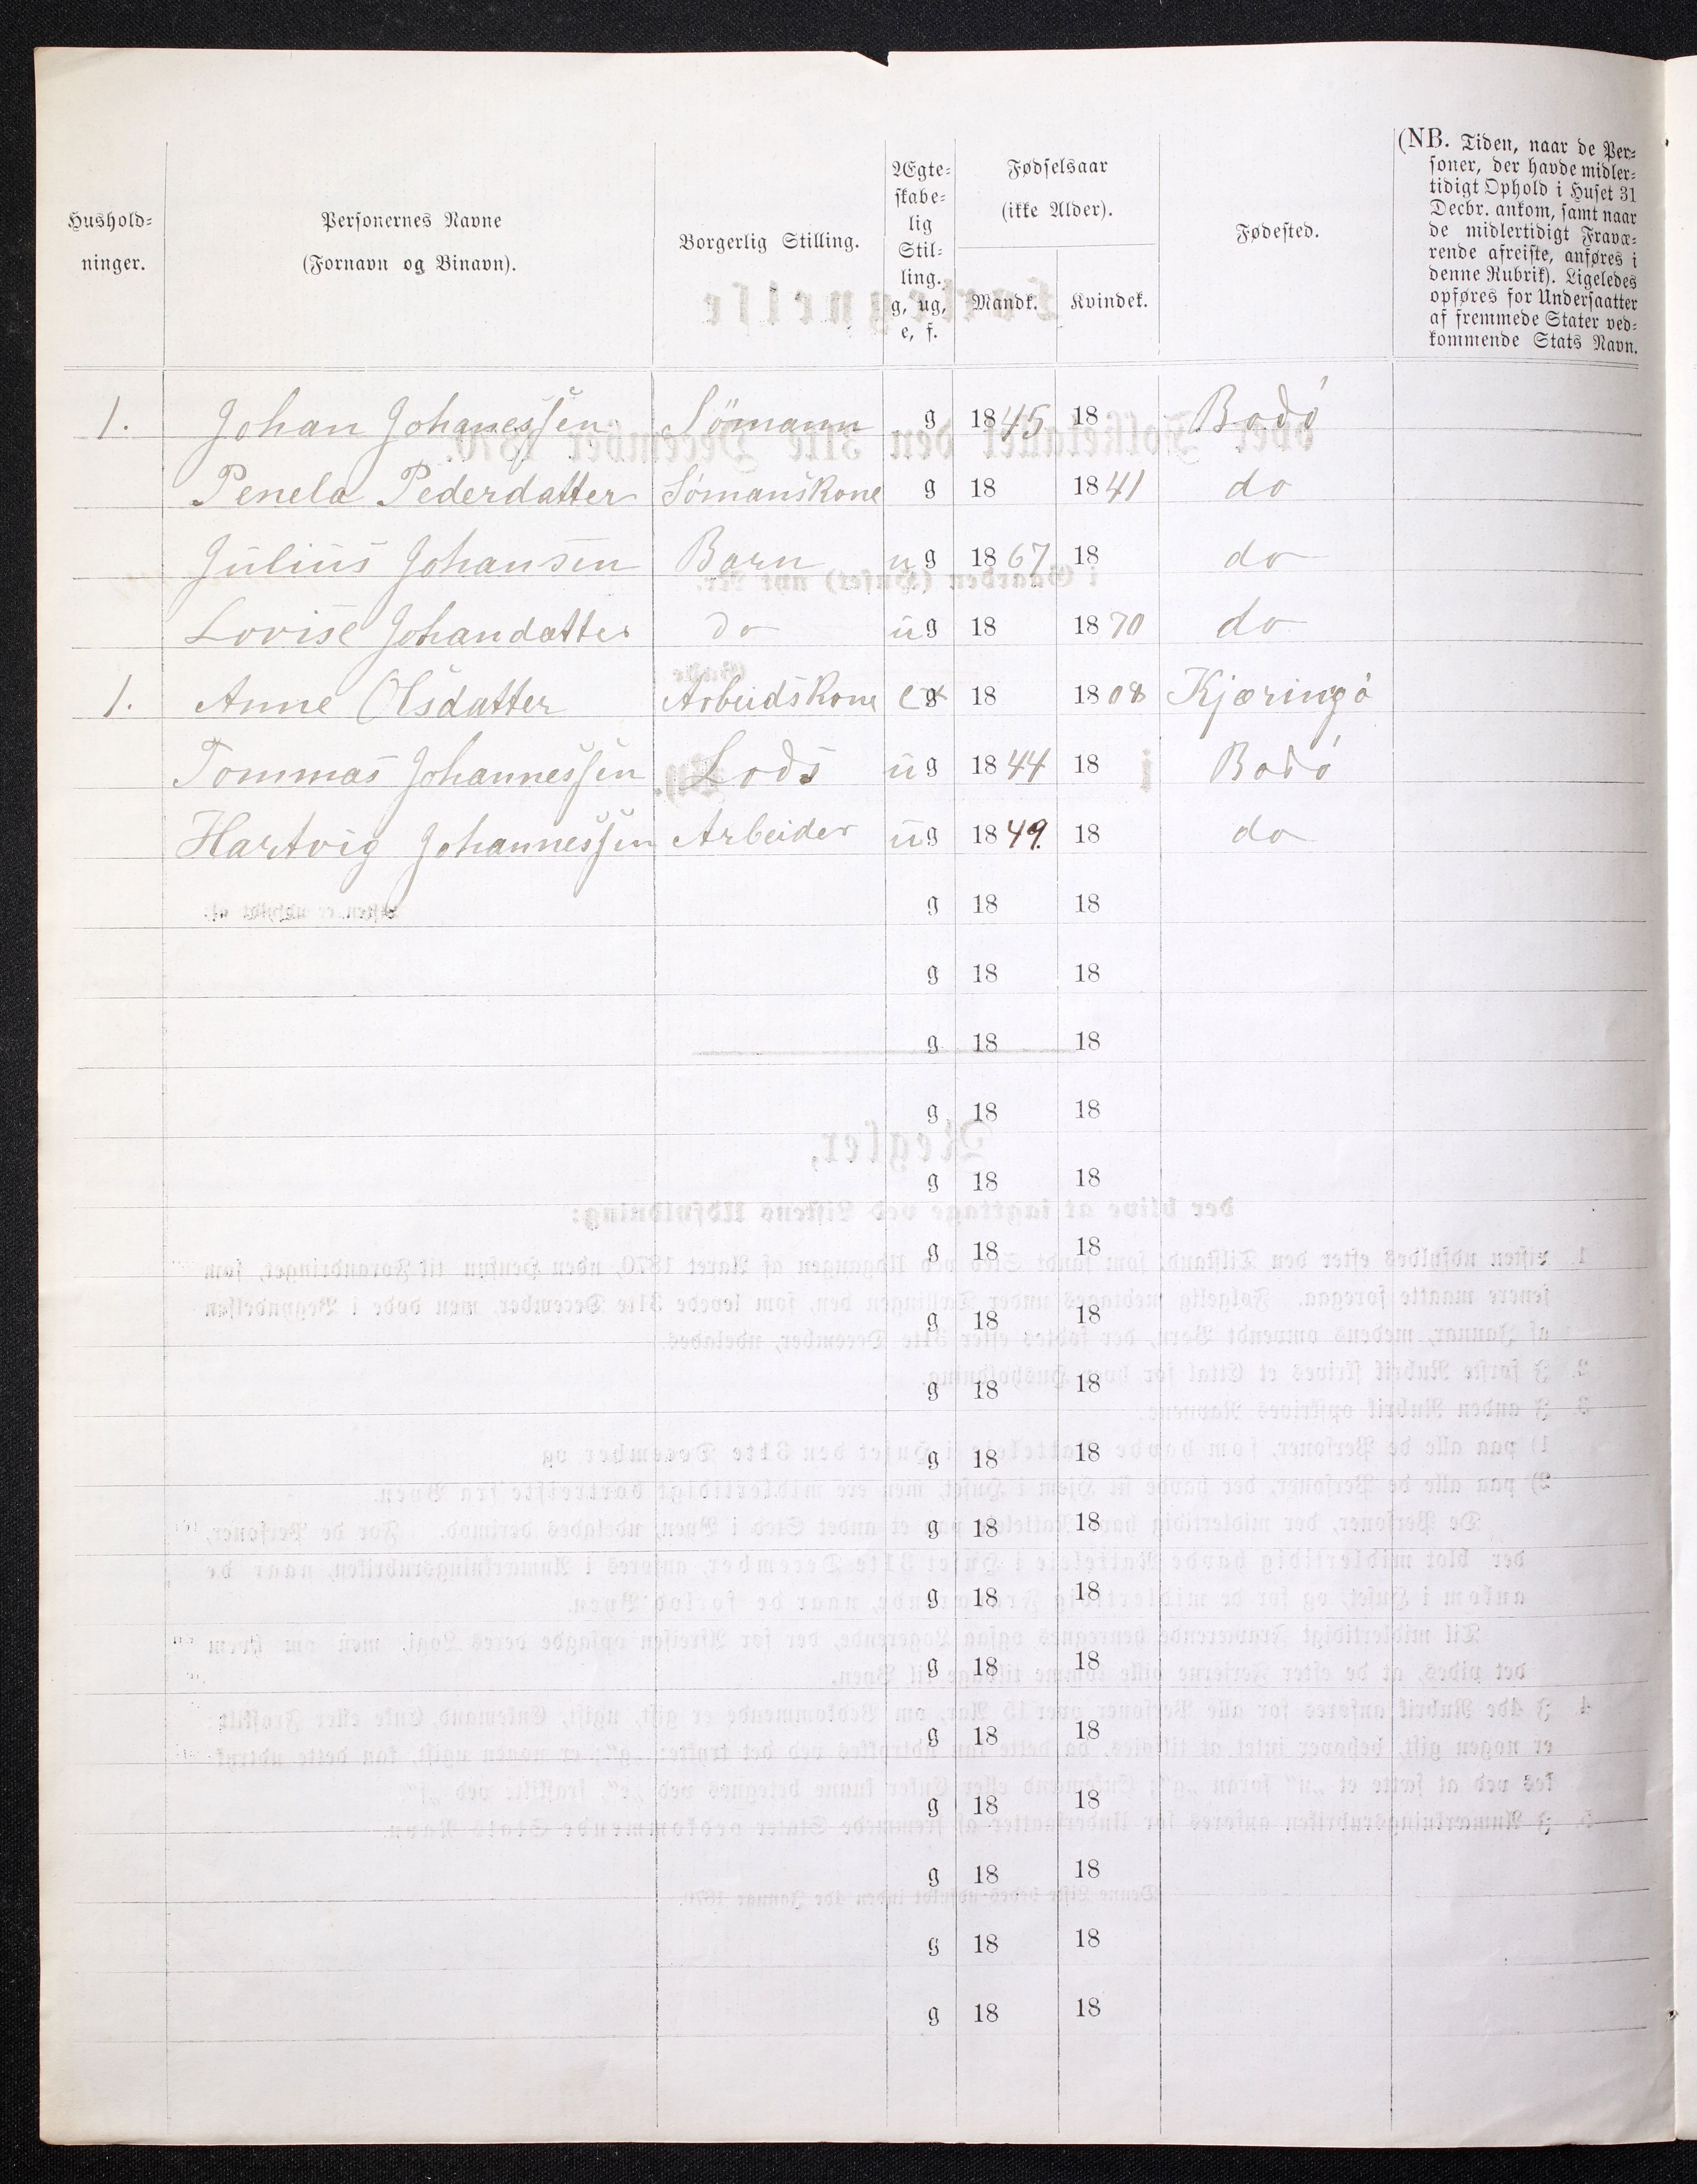 Hushold-
ninger.
Personernes Navne
(Fornavn og Binavn).
Borgerlig Stilling.
Ægte-
skabe-
lig
Stil-
ling.
g, ug,
e, f.
Fødselsaar
(ikke Alder).
Mandk. Kvindek.
Fødested.
(NB. Tiden, naar de Per-
soner, der havde midler-
tidigt Ophold i Huset 31
Decbr. ankom, samt naar
de midlertidigt Fravæ-
rende afreiste, anføres i
denne Rubrik). Ligeledes
opføres for Undersaatter
af fremmede Stater ved-
kommende Stats Navn.
1. Johan Johanessen Sömann g 1845 18 Bodó
Penela Pederdatter Sómanskone g 18 1841 do
Julius Johansen Barn ug 1867 18 do
Lovise Johandatter do ug 18 1870 do
1. Anne Olsdatter Arbeidskone e g 18 1808 Kjæringó
Tommas Johannessen Lods ug 1844 18 Bodó
Hartvig Johannessen Arbeider ug 1849. 18 do
g 18 18
g 18 18
g 18 18
g 18 18
g 18 18
g 18 18
g 18 18
g 18 18
g 18 18
g 18 18
g 18 18
g 18 18
g 18 18
g 18 18
g 18 18
g 18 18
g 18 18